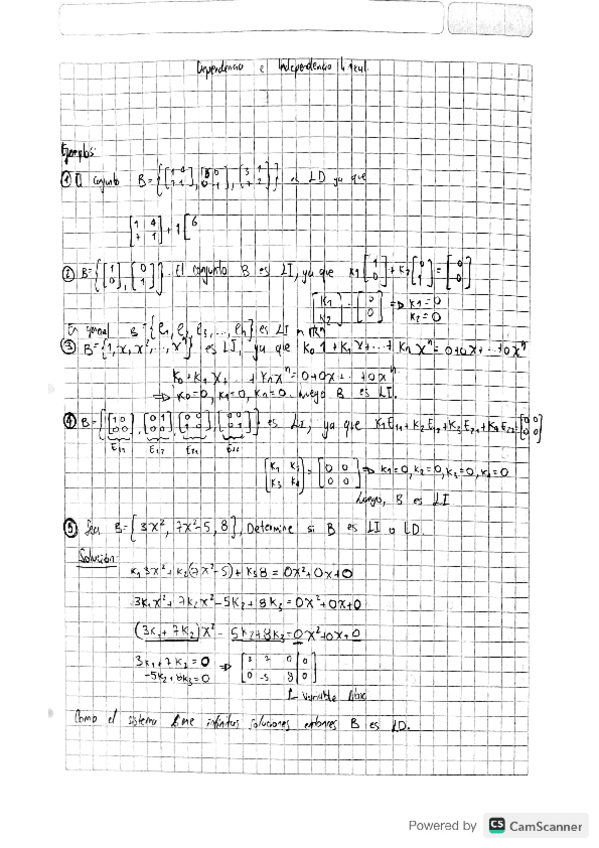 Dependencia e Independencia lineal.
Ejemplos:
① El conjunto B={[1 4; 7 1], [ 0; 0 -1], [3 4; 7 2]} es LD ya que
[1 4; 7 1] + 1 [6
② B={[1; 0], [0; 1]}. El conjunto B es LI, ya que K1[1; 0]+K2[0; 1]=[0; 0]
[K1; K2] = [0; 0] => K1=0 K2=0
En general B={e1, e2, e3, ..., en} es LI en IRn
③ B={1, x, x², ..., xⁿ} es LI, ya que K0 1+K1 x+...+Kn xⁿ=0+0x+...+0xⁿ
K0+K1x+ ... +Knxⁿ=0+0x+...+0xⁿ
=> K0=0, K1=0, Kn=0. luego B es LI.
④ B={[1 0; 0 0], [0 1; 0 0], [0 0; 1 0], [0 0; 0 1]} es LI, ya que K1E11+K2E12+K3E21+K4E22=[0 0; 0 0]
E11 E12 E21 E22
[K1 K2; K3 K4]=[0 0; 0 0] => K1=0, K2=0, K3=0, K4=0
Luego, B es LI
⑤ Sea B={3x², 7x²-5, 8}, Determine si B es LI o LD.
Solución:
K1 3x²+K2(7x²-5)+K3 8=0x²+0x+0
3K1x²+7K2x²-5K2+8K3=0x²+0x+0
(3K1+7K2)x²-5K2+8K3=0x²+0x+0
3K1+7K2=0 => [3 7 0 | 0; 0 -5 8 | 0]
-5K2+8K3=0
variable libre
Como el sistema tiene infinitas soluciones entonces B es LD.
Powered by CS CamScanner